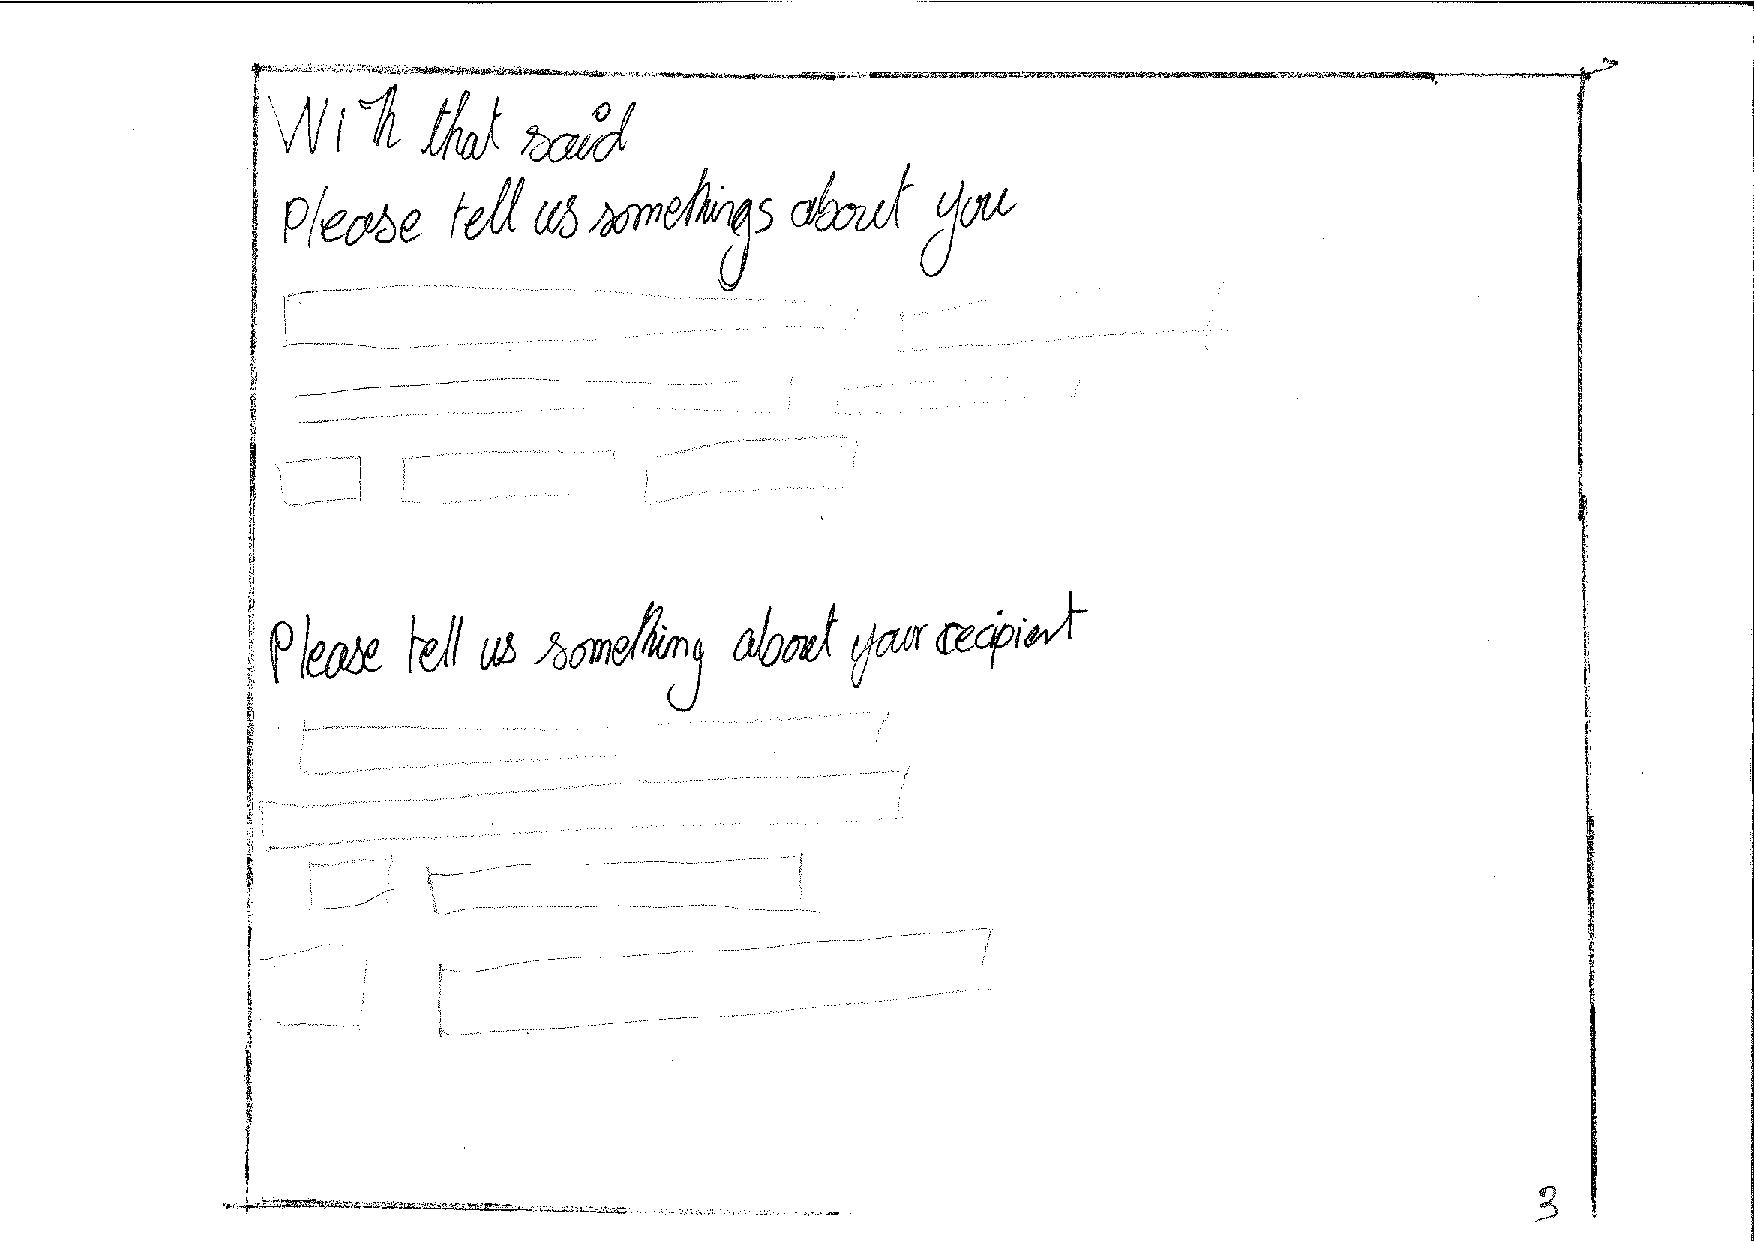 With that said
Please tell us somethings about you
Please tell us something about your recipient
3